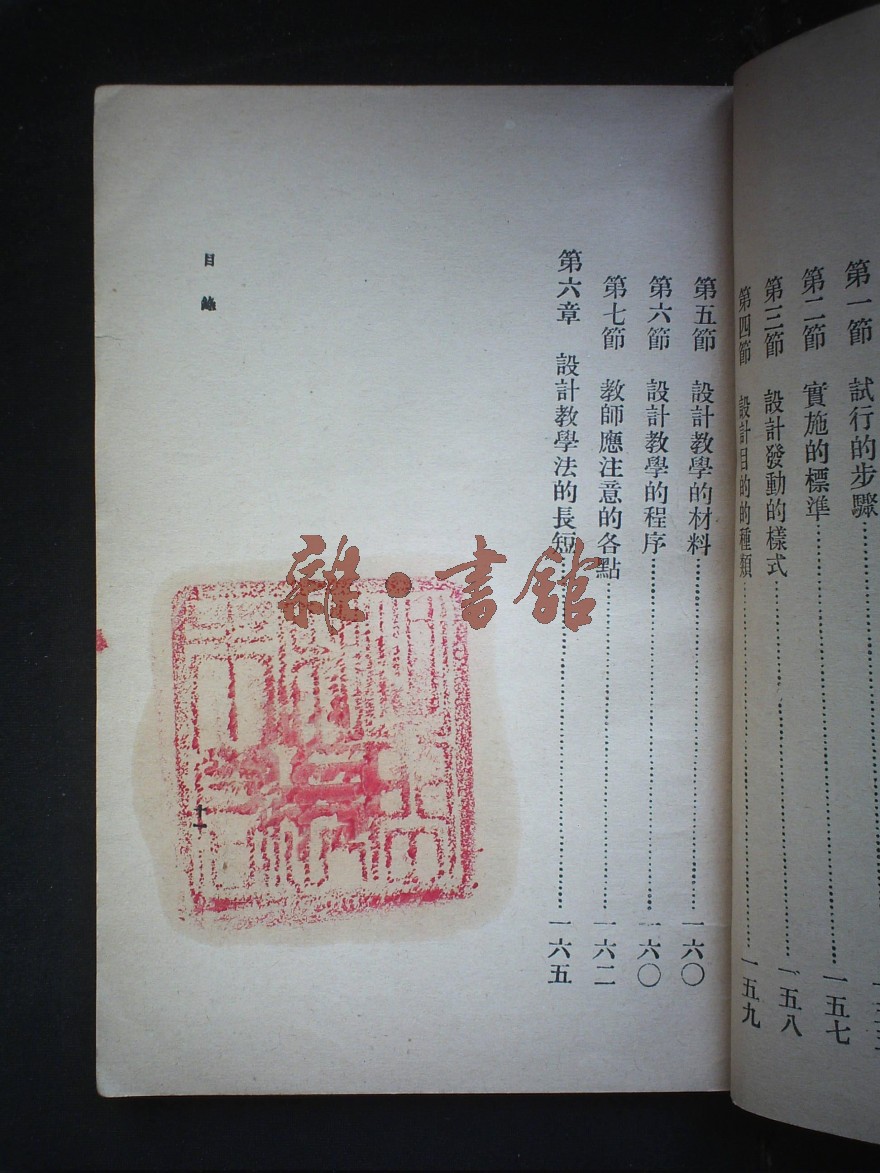 第一節　試行的步驟
第二節　實施的標準……一五七
第三節　設計發動的樣式……一五八
第四節　設計目的的種類……一五九
第五節　設計教學的材料……一六〇
第六節　設計教學的程序……一六〇
第七節　教師應注意的各點……一六二
第六章　設計教學法的長短……一六五
目錄
十一
雜·書館